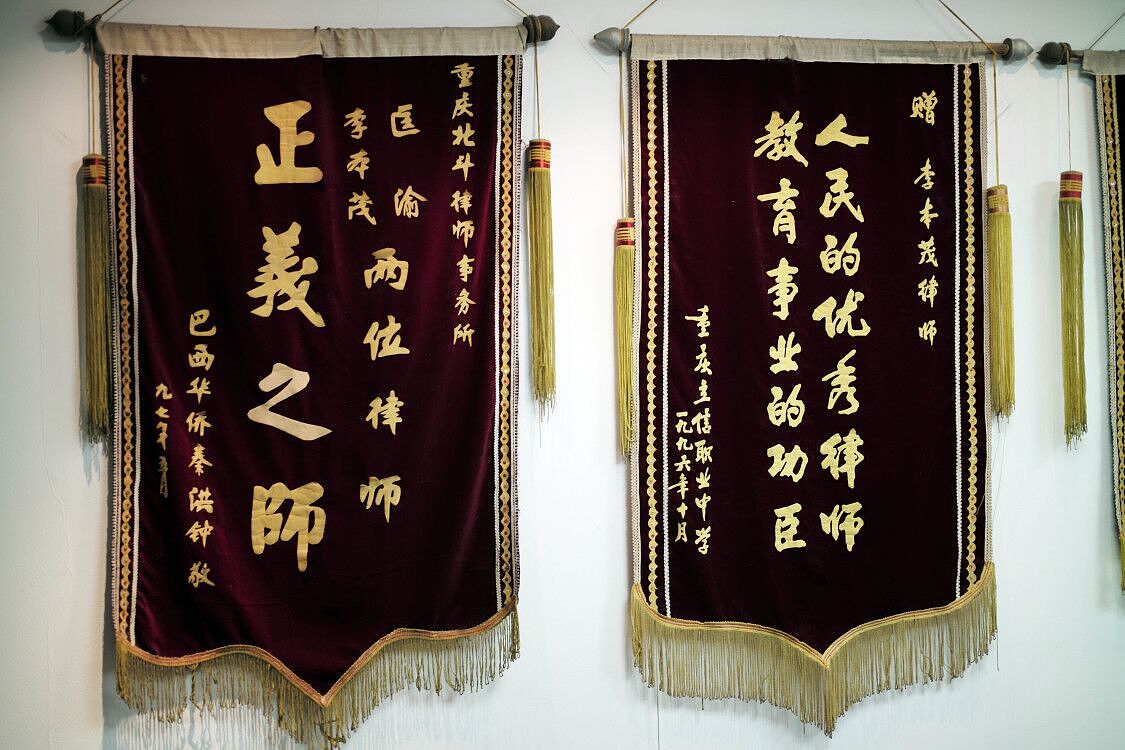 重庆北斗律师事务所
匡渝
李本茂
两位律师
正義之師
巴西华侨秦洪钟敬
九七年五月
赠 李本茂律师
人民的优秀律师
教育事业的功臣
重庆立信职业中学
一九九六年十月